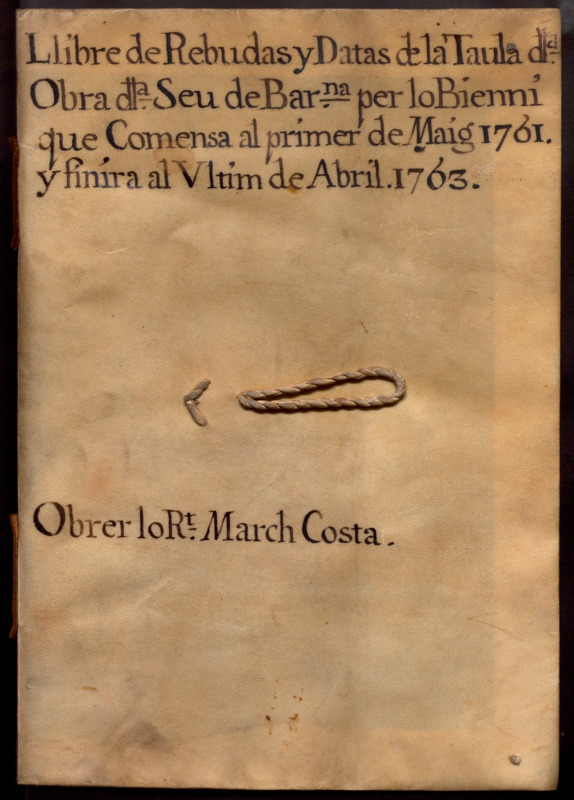 Llibre de Rebudas y Datas de la Taula dl.ª
Obra dl.ª Seu de Bar.na per lo Bienni
que Comensa al primer de Maig 1761.
y finira al Vltim de Abril. 1763.
Obrer lo R.t March Costa.